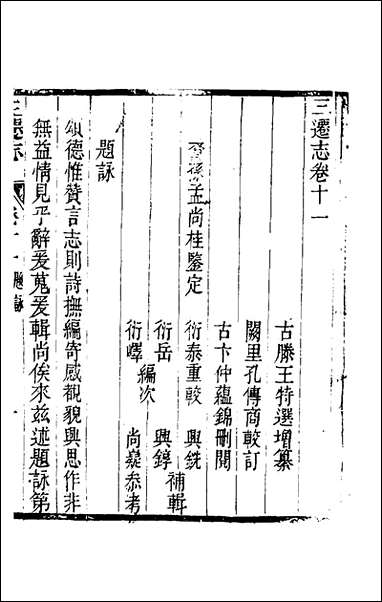 三遷志卷十一
古滕王特選增纂
闕里孔傳商較訂
古卞仲蘊錦刪閱
裔孫孟尚桂鑒定
衍泰重較　興銑
衍岳　　興錞
編次　　補輯
衍嶧　　尚㠖參考
題詠
頌德惟贊言志則詩撫編寄感覩貌興思作非
無益情見乎辭爰蒐爰輯尚俟來玆述題詠第
三遷志
卷十一 題詠
一